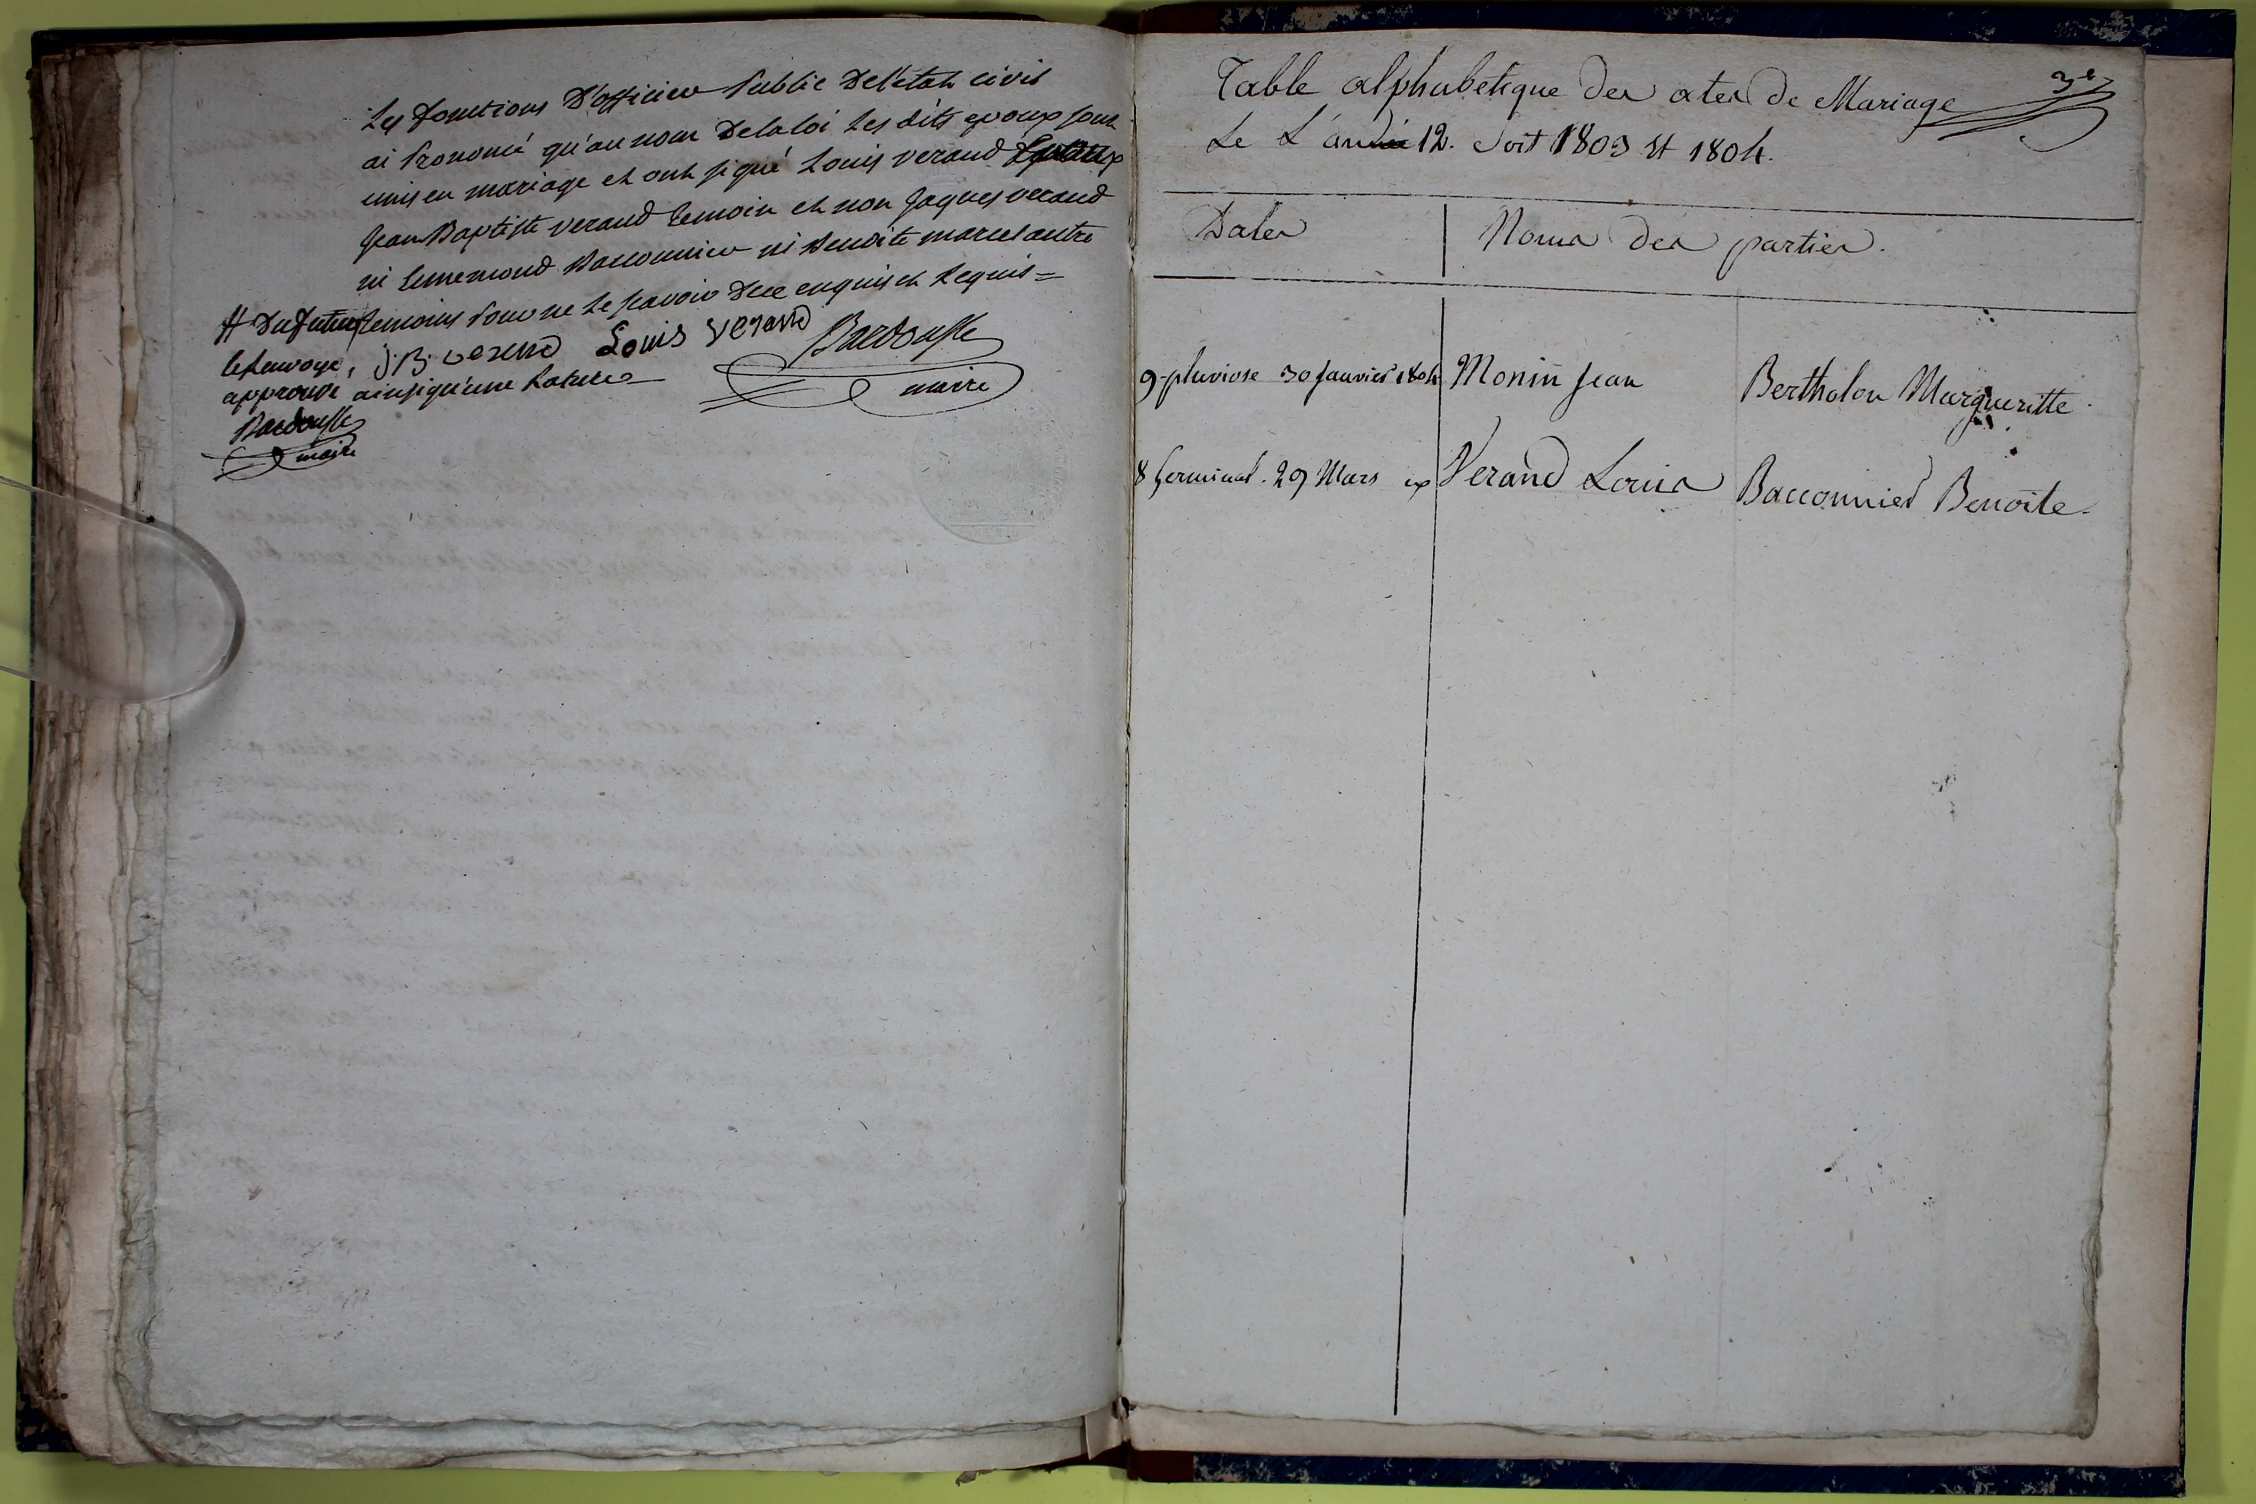 Les fonctions D'officier Public Deletat civil
ai Prononcé qu'au nom Delaloi Les dits epoux sont
unis en mariage et ont signé Louis verand
Jean Baptiste verand temoin et non Jaques verand
ni Baconnier ni Benoite marcel autre
temoins Pour ne le scavoir Dece enquis et Requis =
# Du futur
le renvoye, J. B. verand Louis Verand Bardousse
approuvé ainsi qu'une Rature maire
Bardousse
maire
Table alphabetique des ates de Mariage 3e
de L'année 12. Soit 1803 et 1804.
Dates Noms des parties.
9 pluviose 30 Janvier 1804 Monin Jean Bertholon Margueritte.
8 Germinal. 29 Mars Verand Louis Bacconnier Benoite.